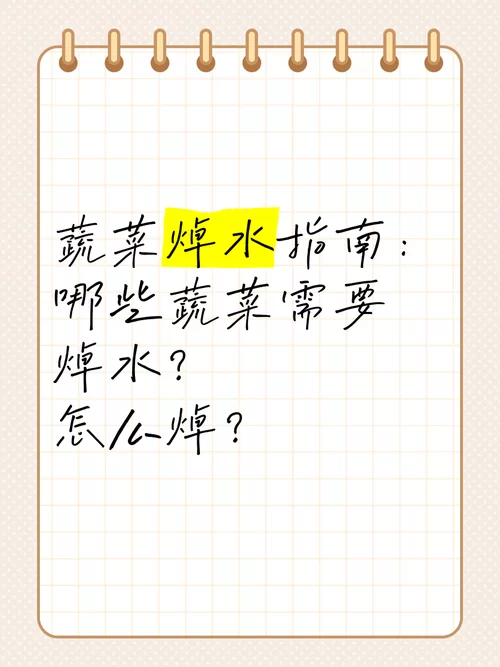 蔬菜焯水指南：
哪些蔬菜需要
焯水？
怎么焯？